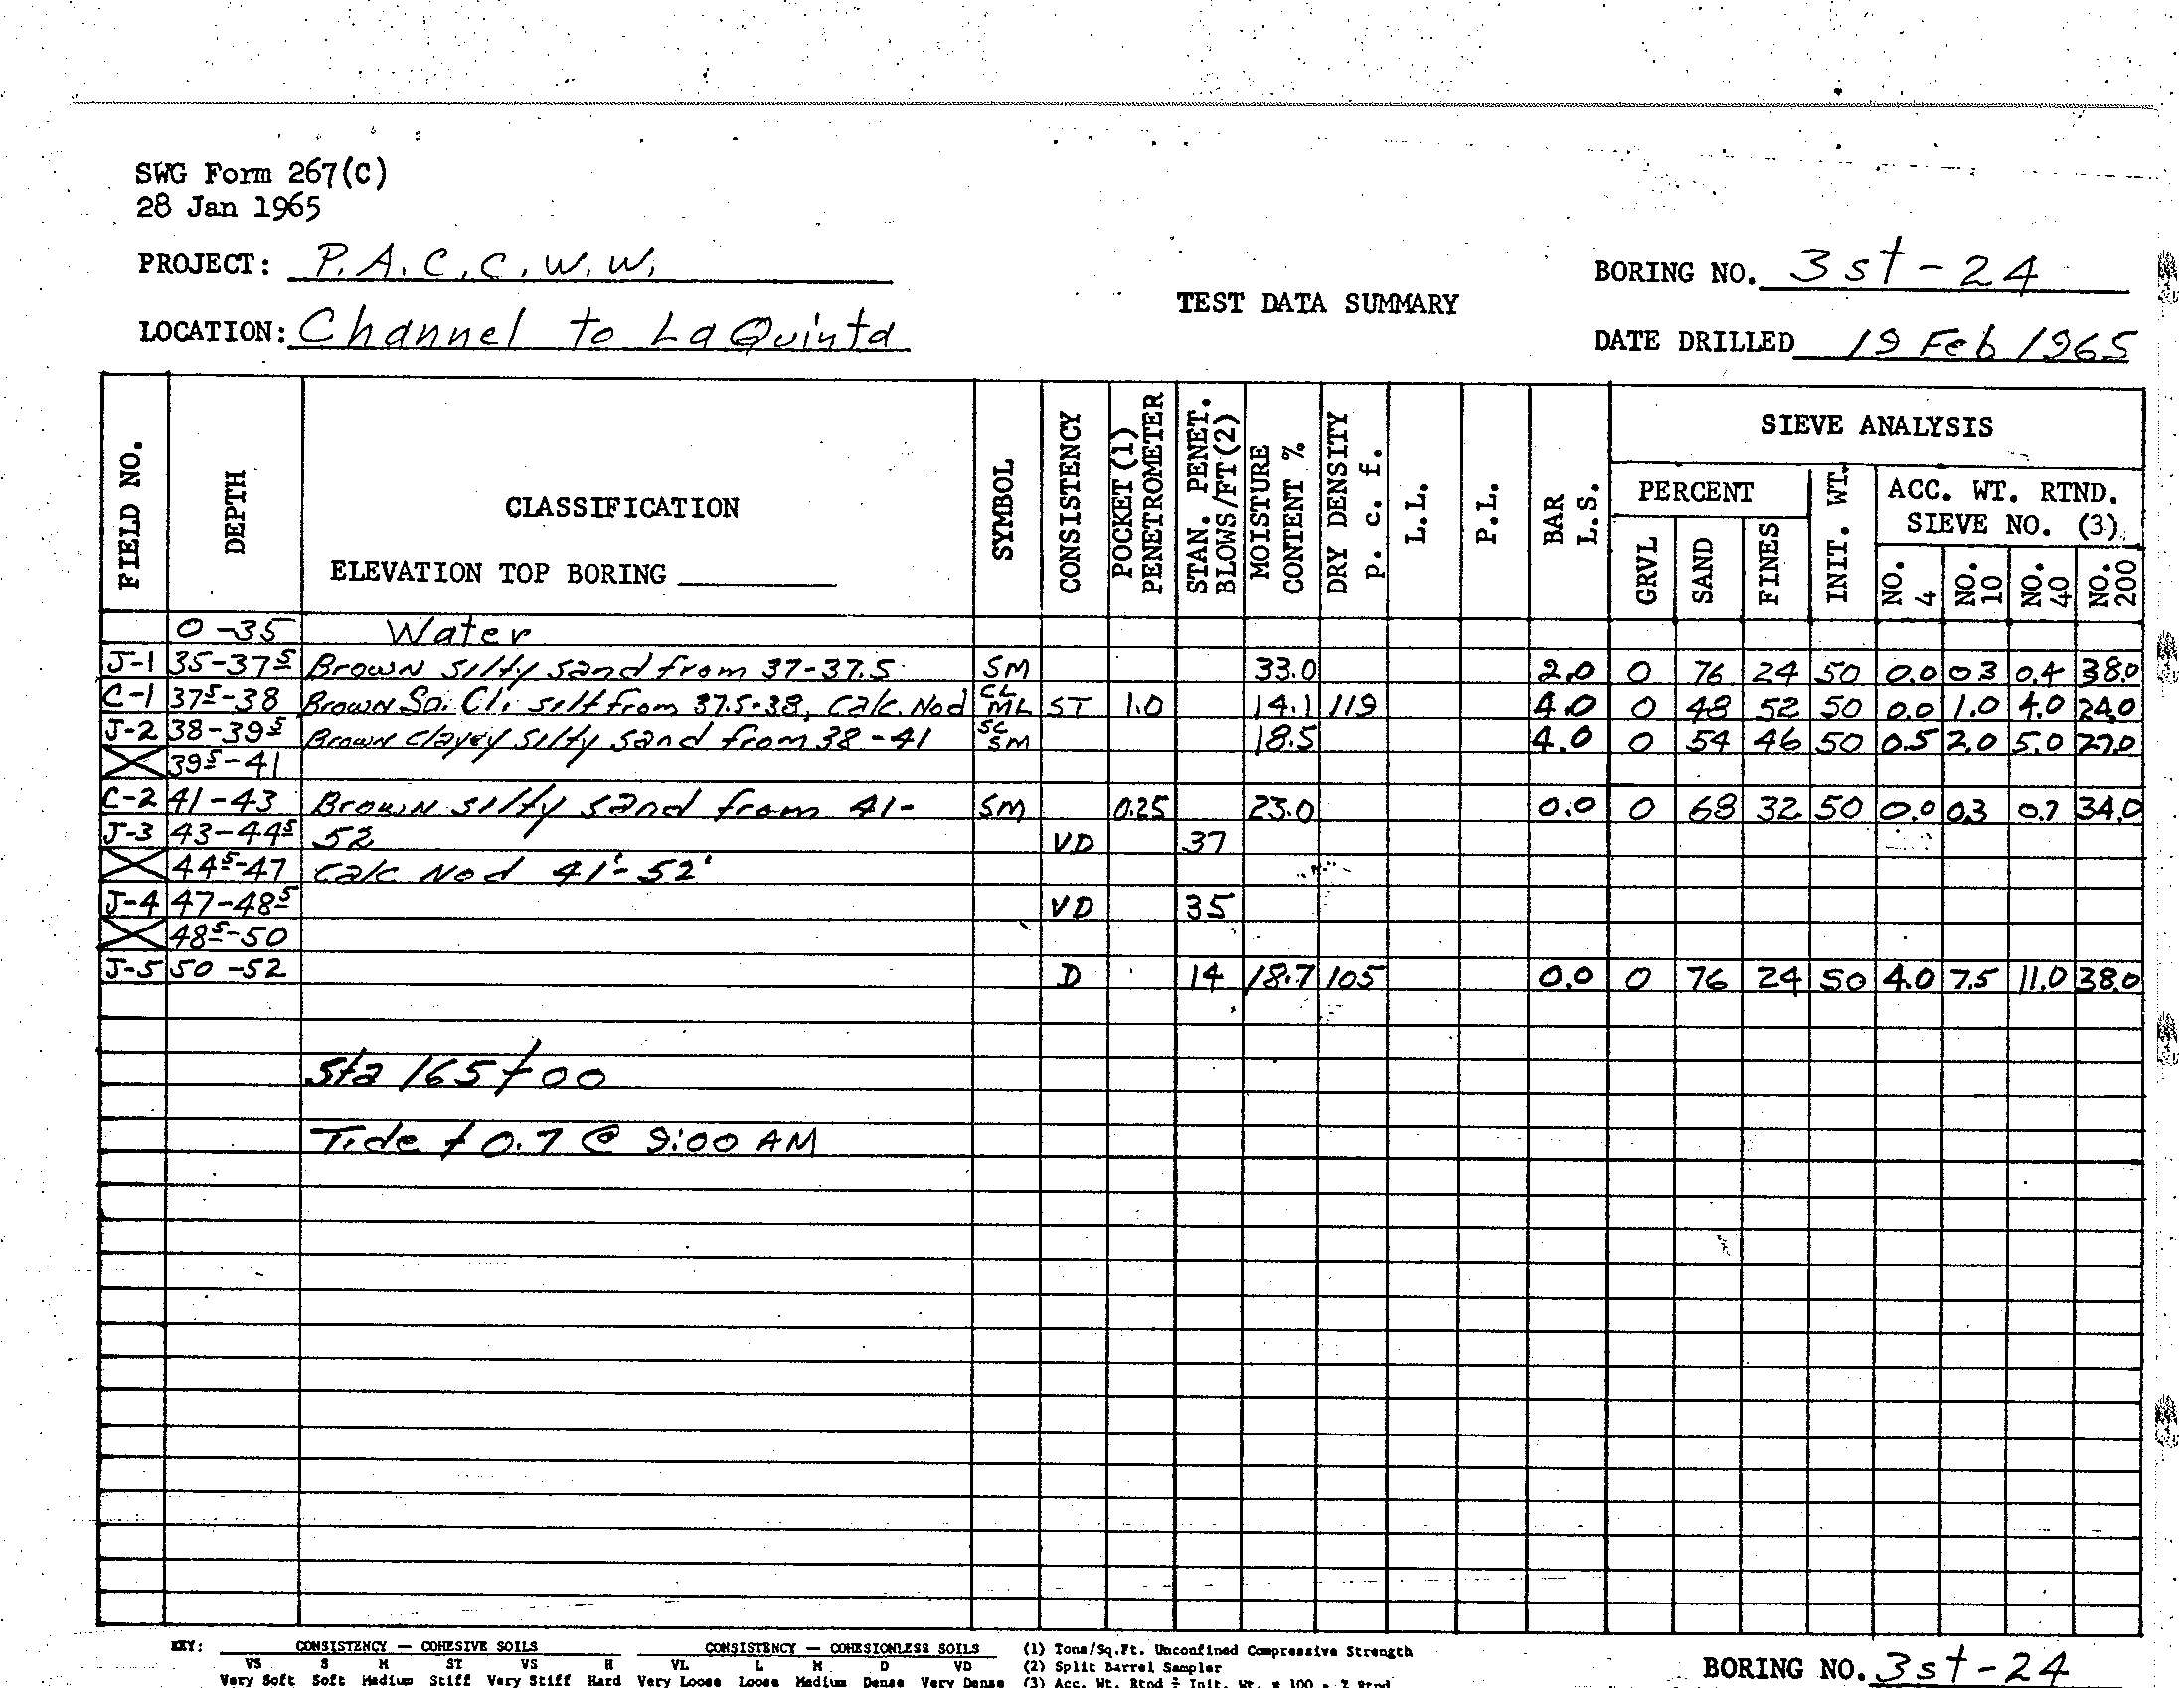 SWG Form 267(C)
28 Jan 1965
PROJECT: P.A.C.C.W.W.
BORING NO. 3st-24
TEST DATA SUMMARY
LOCATION: Channel to LaQuinta
DATE DRILLED 19 Feb 1965
FIELD NO. DEPTH CLASSIFICATION ELEVATION TOP BORING SYMBOL CONSISTENCY POCKET (1) PENETROMETER STAN. PENET. BLOWS/FT(2) MOISTURE CONTENT % DRY DENSITY p. c. f. L.L. P.L. BAR L.S. SIEVE ANALYSIS
PERCENT GRVL SAND FINES INIT. WT. ACC. WT. RTND. SIEVE NO. (3) NO. 4 NO. 10 NO. 40 NO. 200
0-35 Water
J-1 35-37⁵ Brown silty sand from 37-37.5 SM 33.0 2.0 0 76 24 50 0.0 03 0.4 38.0
C-1 37⁵-38 Brown Sa. Cl. silt from 37.5-38, Calc. Nod CL ML ST 1.0 14.1 119 4.0 0 48 52 50 0.0 1.0 4.0 24.0
J-2 38-39⁵ Brown clayey silty sand from 38-41 SC SM 18.5 4.0 0 54 46 50 0.5 2.0 5.0 27.0
X 39⁵-41
C-2 41-43 Brown silty sand from 41- SM 0.25 23.0 0.0 0 68 32 50 0.0 0.3 0.7 34.0
J-3 43-44⁵ 52 VD 37
X 44⁵-47 Calc Nod 41'-52'
J-4 47-48⁵ VD 35
X 48⁵-50
J-5 50-52 D 14 18.7 105 0.0 0 76 24 50 4.0 7.5 11.0 38.0
Sta 165+00
Tide + 0.7 @ 9:00 AM
KEY: CONSISTENCY — COHESIVE SOILS CONSISTENCY — COHESIONLESS SOILS (1) Tons/Sq.Ft. Unconfined Compressive Strength
VS S M ST VS H VL L M D VD (2) Split Barrel Sampler
Very Soft Soft Medium Stiff Very Stiff Hard Very Loose Loose Medium Dense Very Dense (3) Acc. Wt. Rtnd ÷ Init. Wt. x 100 = % Rtnd
BORING NO. 3st-24